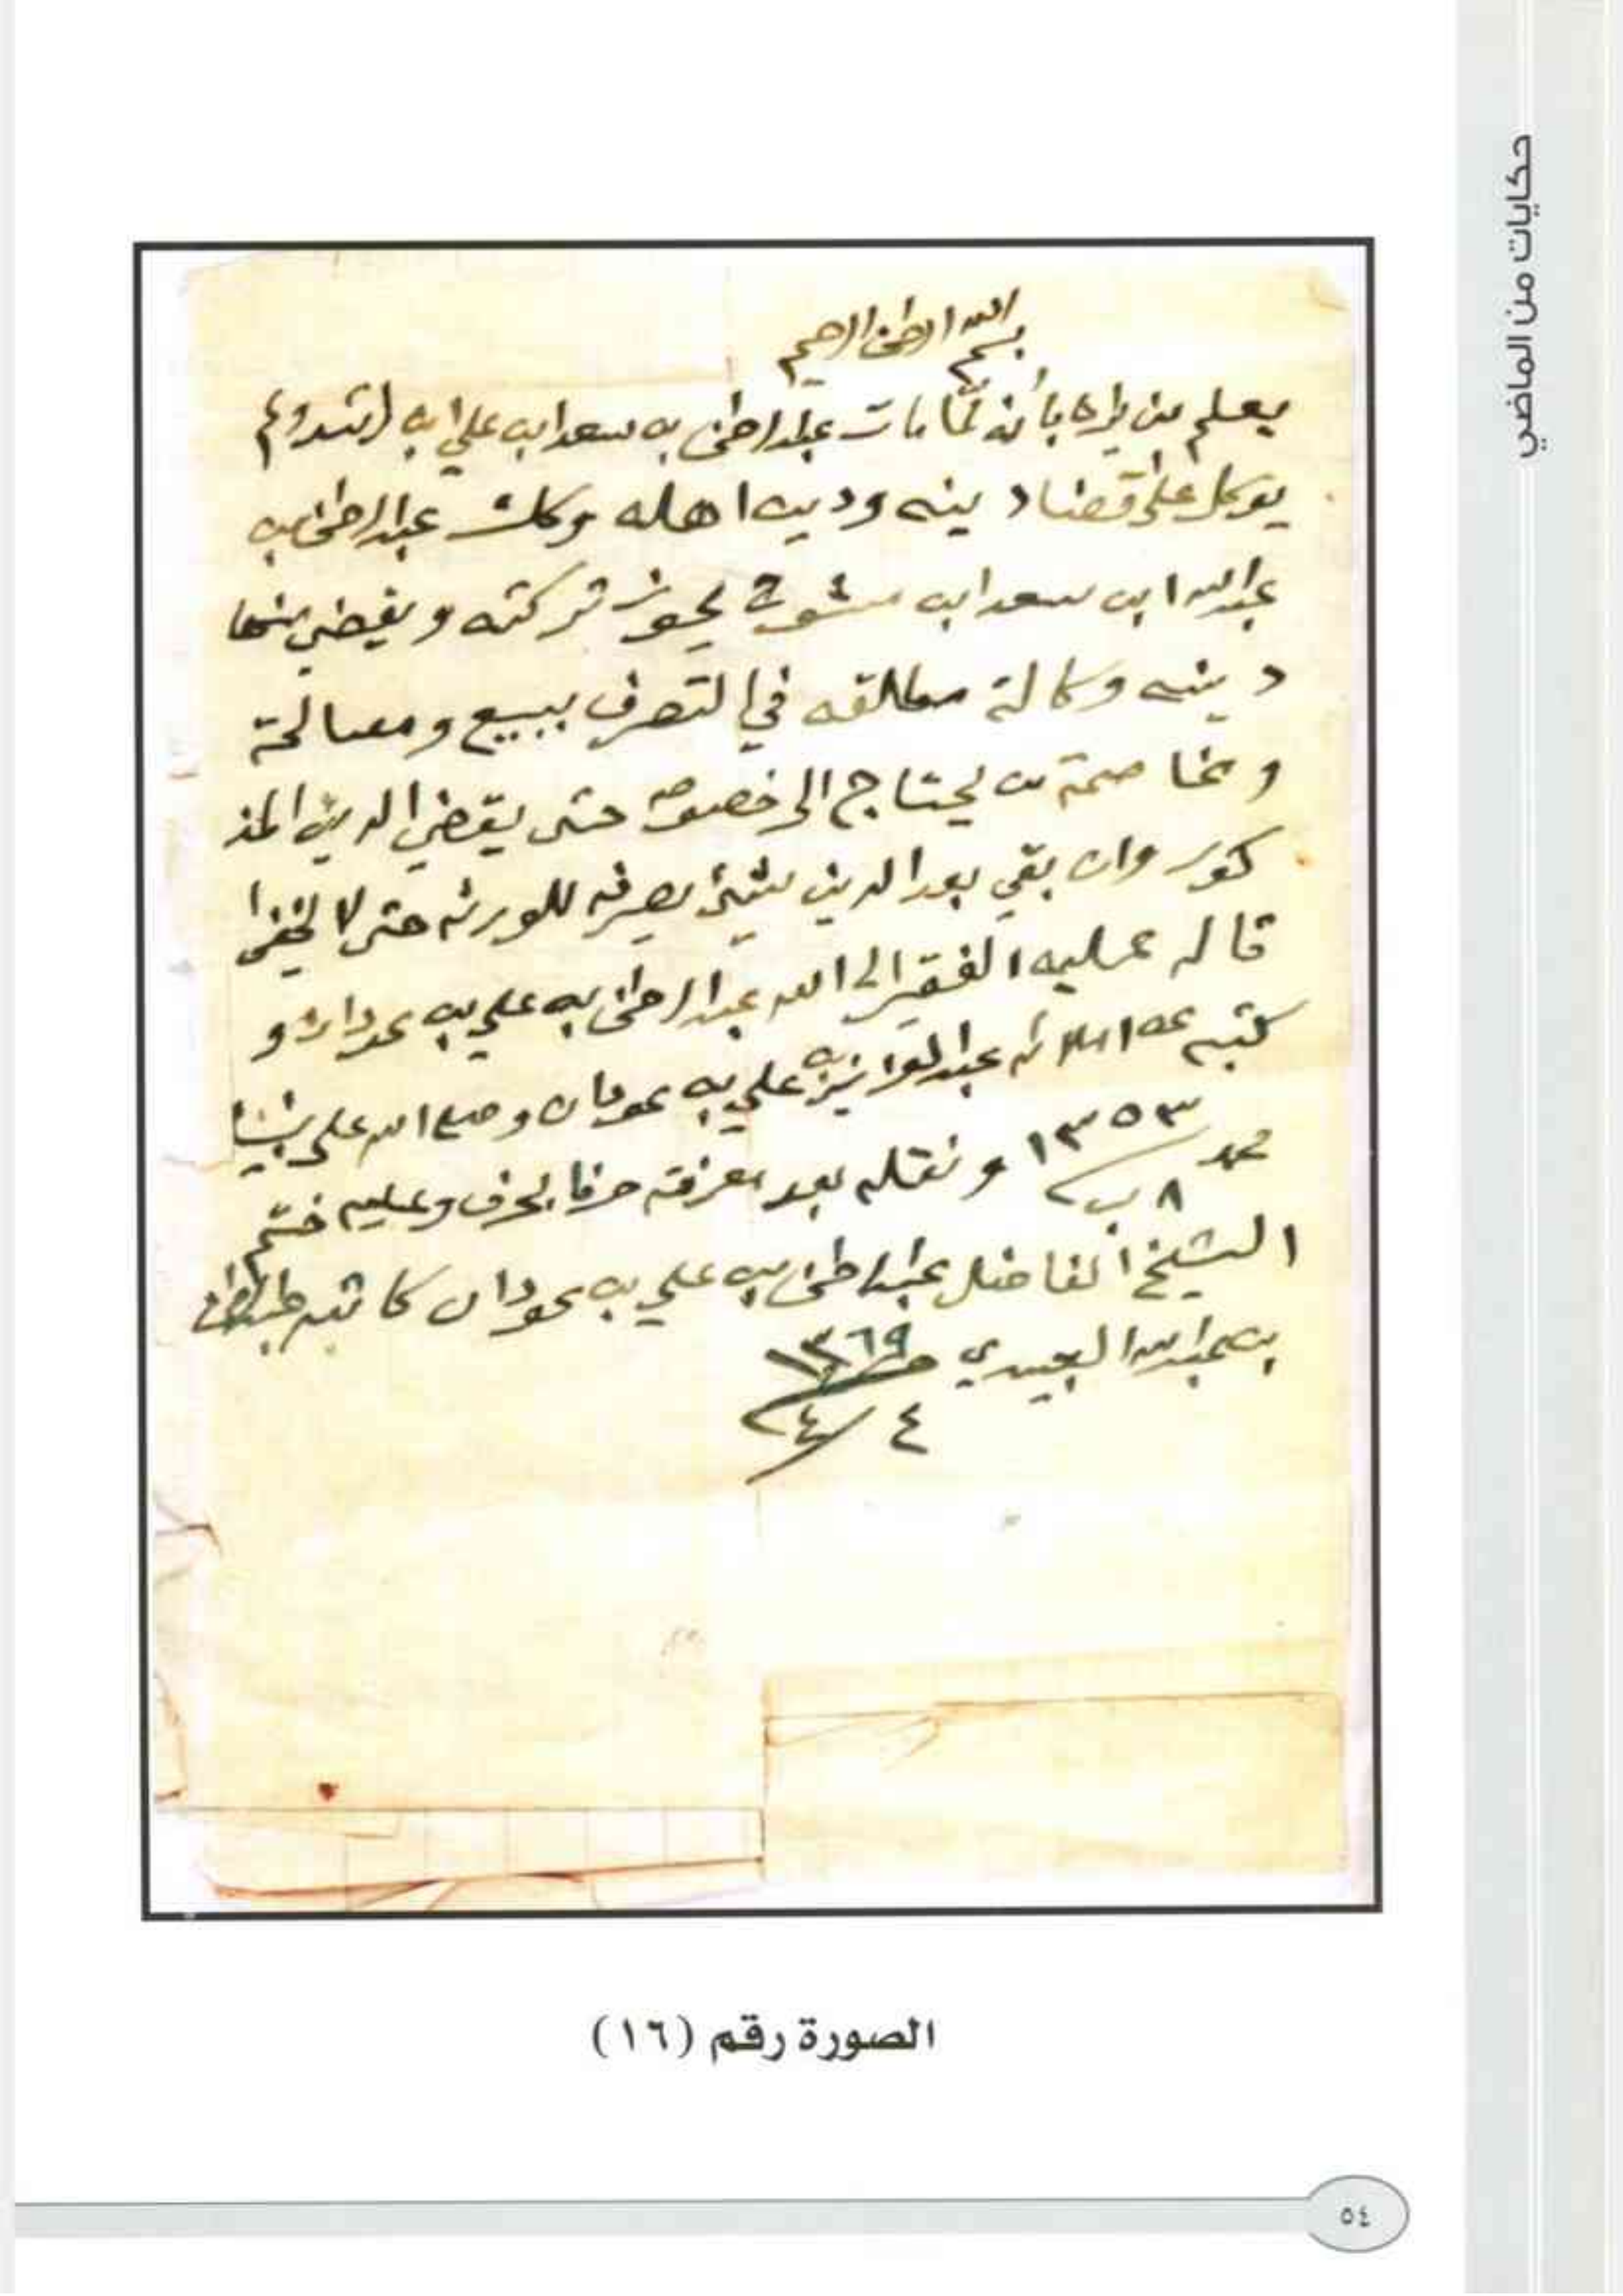 حكايات من الماضي
بسم الله الرحمن الرحيم
يعلم من يراه بأنه لما مات عبدالرحمن بن سعد ابن علي ابن ولم
يوكل على قضاء دينه ودين اهله وكلت عبدالرحمن بن
عبدالله ابن سعد ابن يحوز تركته ويقضي منها
دينه وكالة مطلقه في التصرف ببيع ومصالحة
ومخاصمة من يحتاج الى خصومه حتى يقضي الدين المذ
كور وان بقي بعد الدين شيئ يصرفه للورثه حتى لا يخفى
قاله عليه الفقير الى الله عبدالرحمن بن علي بن عودان و
كتبه عن املائه عبدالعزيز بن علي بن عودان وصلى الله على نبينا
محمد ١٣٥٣ ونقله بعد معرفته حرفا بحرف وعليه ختم
٨ ب
الشيخ الفاضل عبدالرحمن بن علي بن عودان كاتبه
بن عبدالله ١٣٦٩
٤ / ٤
الصورة رقم (١٦)
٥٤